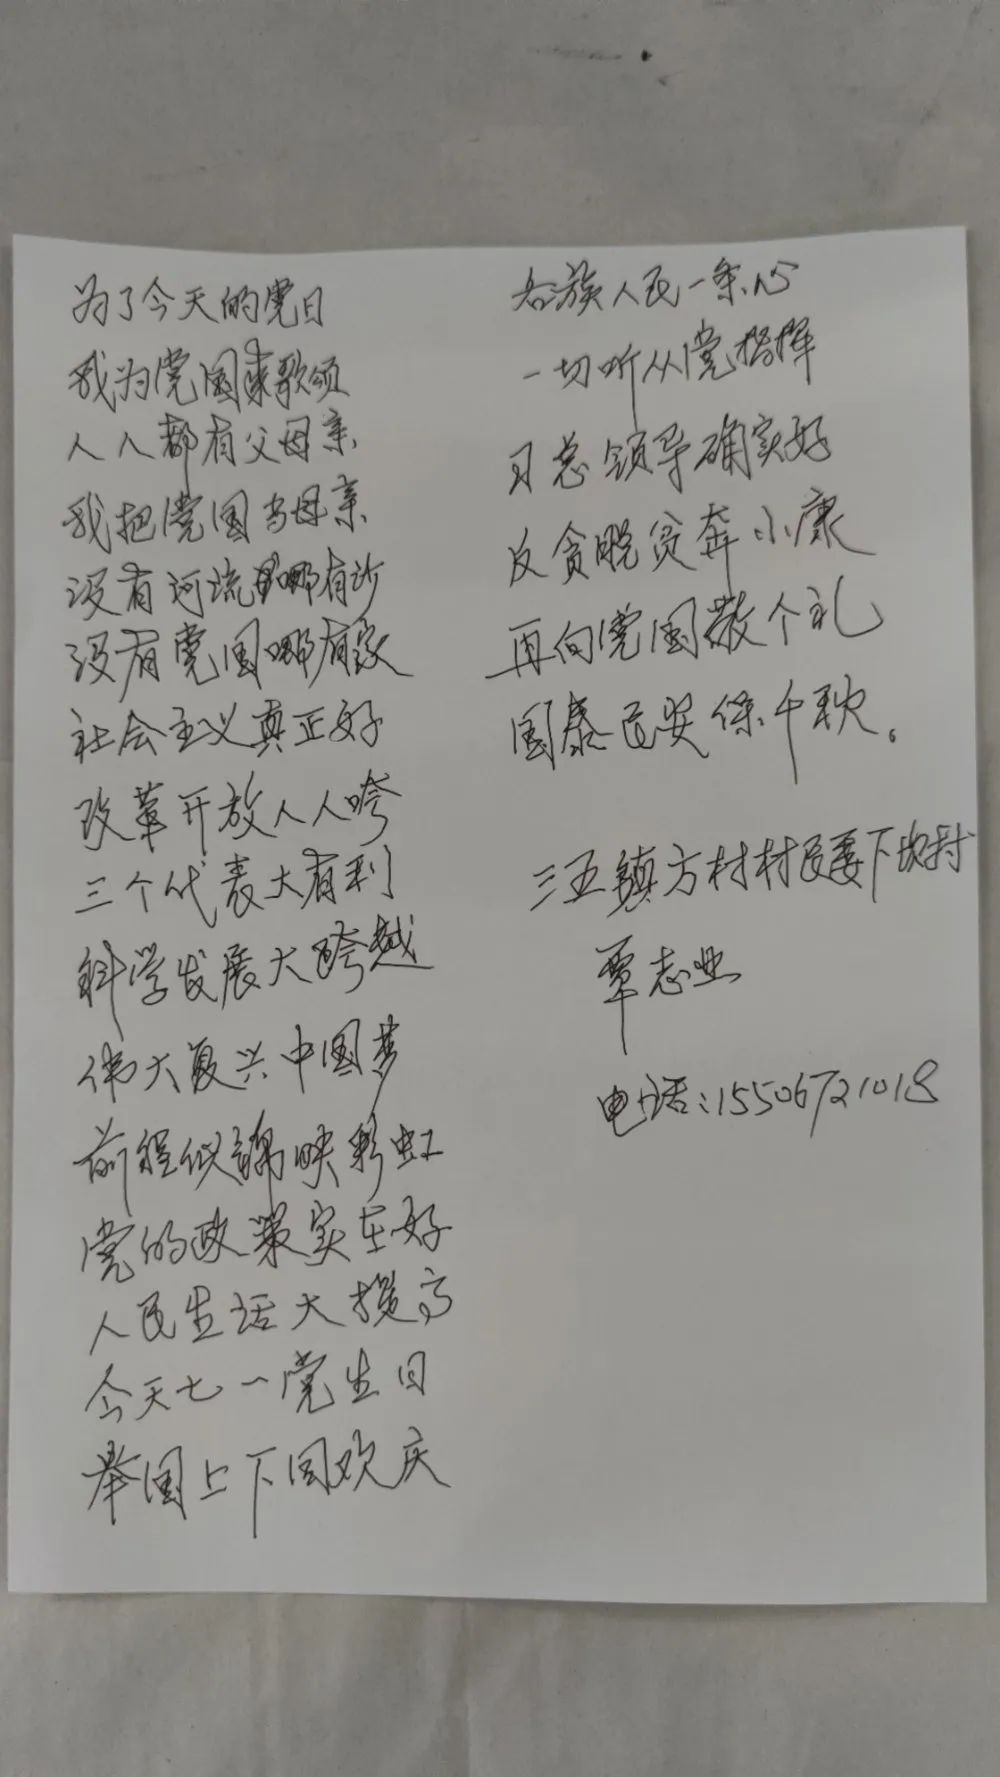 为了今天的党日
我为党国来歌颂
人人都有父母亲
我把党国当母亲
没有河流哪有沙
没有党国哪有家
社会主义真正好
改革开放人人夸
三个代表大有利
科学发展大跨越
伟大复兴中国梦
前程似锦映彩虹
党的政策实在好
人民生活大提高
今天七一党生日
举国上下同欢庆
各族人民一条心
一切听从党指挥
习总领导确实好
反贪脱贫奔小康
再向党国敬个礼
国泰民安保千秋。
三五镇方村村民委下坎村
覃志业
电话:15506721018